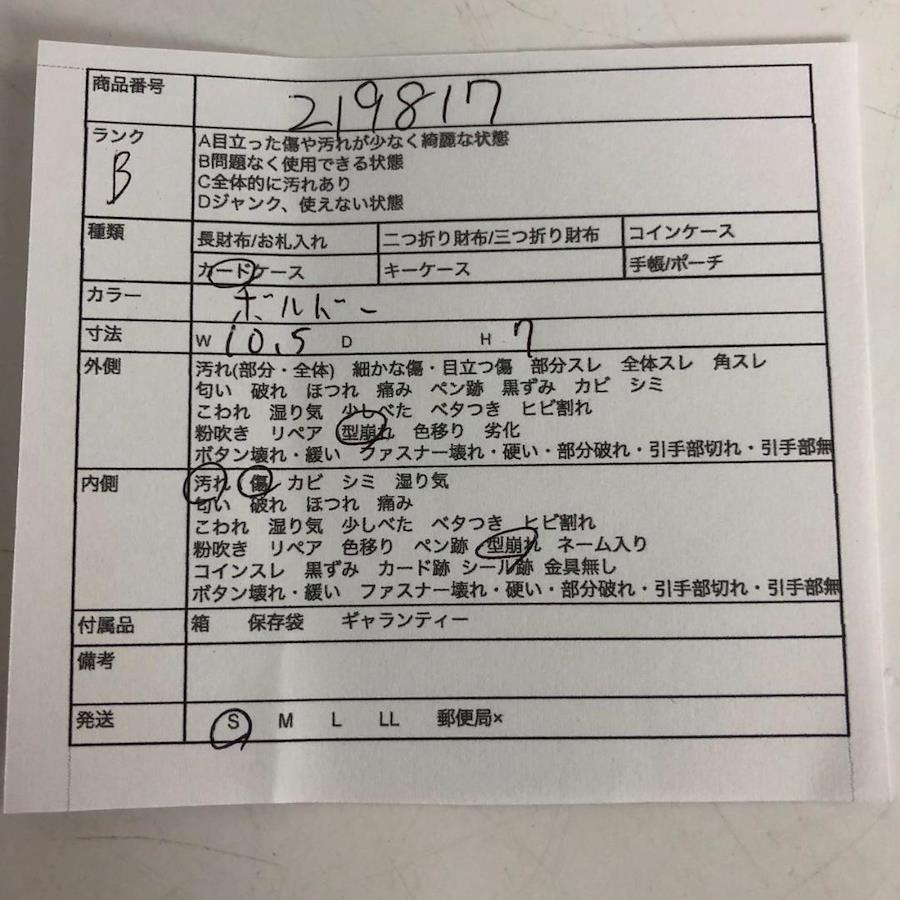 商品番号 219817
ランク B
A目立った傷や汚れが少なく綺麗な状態
B問題なく使用できる状態
C全体的に汚れあり
Dジャンク、使えない状態
種類 長財布/お札入れ 二つ折り財布/三つ折り財布 コインケース
カードケース キーケース 手帳/ポーチ
カラー ボルドー
寸法 W 10.5 D H 7
外側 汚れ(部分・全体) 細かな傷・目立つ傷 部分スレ 全体スレ 角スレ
匂い 破れ ほつれ 痛み ペン跡 黒ずみ カビ シミ
こわれ 湿り気 少しべた ベタつき ヒビ割れ
粉吹き リペア 型崩れ 色移り 劣化
ボタン壊れ・緩い ファスナー壊れ・硬い・部分破れ・引手部切れ・引手部無
内側 汚れ 傷 カビ シミ 湿り気
匂い 破れ ほつれ 痛み
こわれ 湿り気 少しべた ベタつき ヒビ割れ
粉吹き リペア 色移り ペン跡 型崩れ ネーム入り
コインスレ 黒ずみ カード跡 シール跡 金具無し
ボタン壊れ・緩い ファスナー壊れ・硬い・部分破れ・引手部切れ・引手部無
付属品 箱 保存袋 ギャランティー
備考
発送 S M L LL 郵便局×